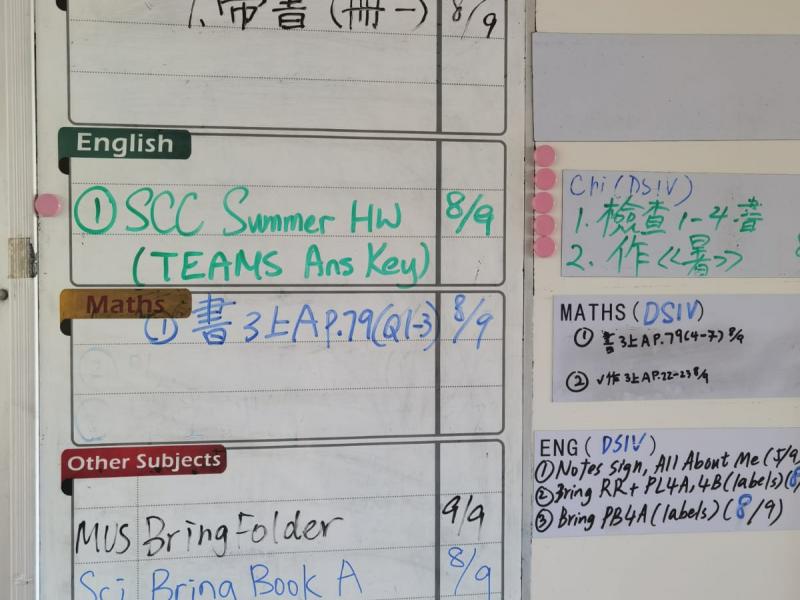 1. 帶書(冊一) 8/9
English
① SCC Summer HW 8/9
(TEAMS Ans Key)
Maths
① 書3上A P.79(Q1-3) 8/9
Other Subjects
MUS Bring Folder 9/9
Sci Bring Book A 8/9
Chi (DSIV)
1. 檢查1-4書
2. 作<<暑>>
MATHS (DSIV)
① 書3上A P.79(4-7) 8/9
② 作3上A P.22-23 8/9
ENG (DSIV)
① Notes sign, All About Me (5/9
② Bring RR + PL4A, 4B (labels) (8
③ Bring PB4A (labels) (8/9)